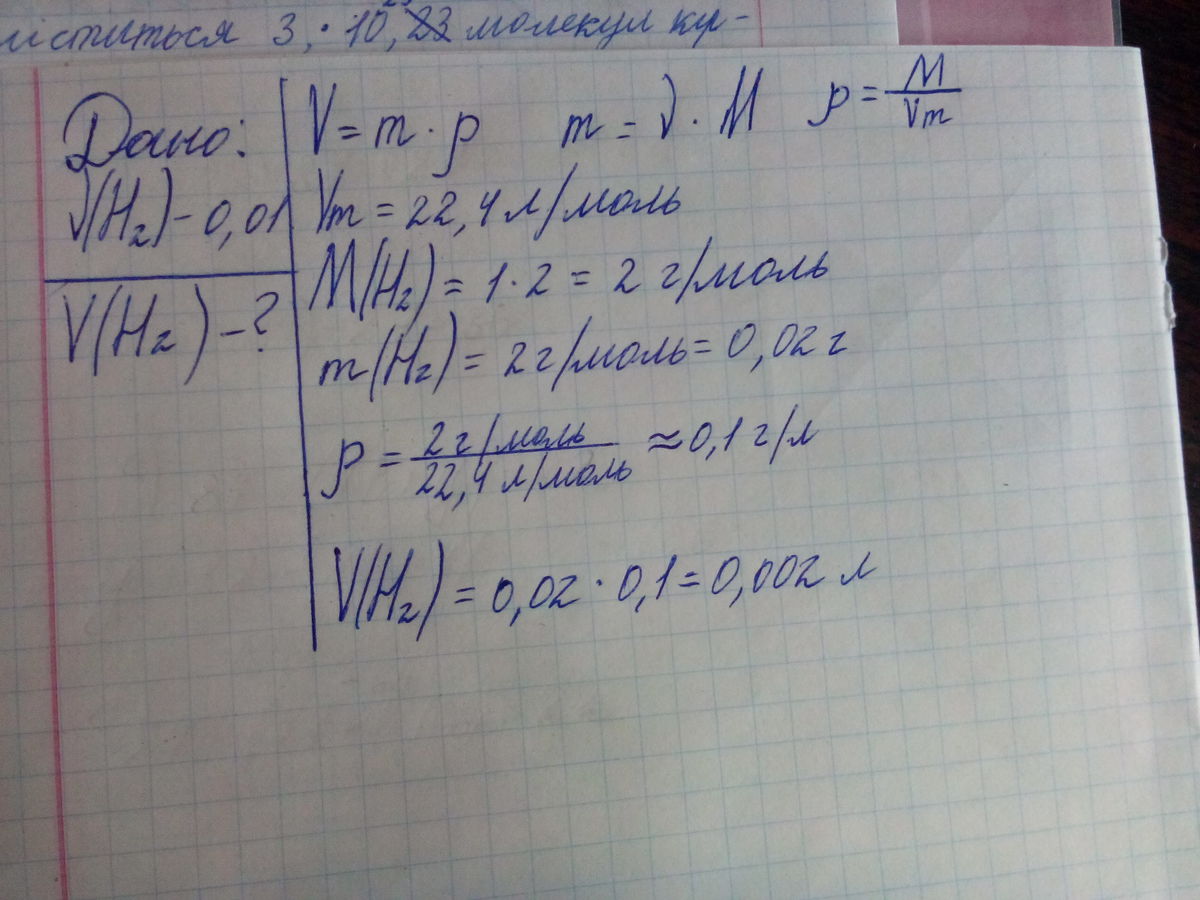 міститься 3,·10, 23 молекул кр-
Дано:
ν(H₂) – 0,01
V(H₂) – ?
V = m · ρ m = ν · M ρ = M/Vm
Vm = 22,4 л/моль
M(H₂) = 1·2 = 2 г/моль
m(H₂) = 2г/моль = 0,02 г
ρ = 2 г/моль / 22,4 л/моль ≈ 0,1 г/л
V(H₂) = 0,02 · 0,1 = 0,002 л